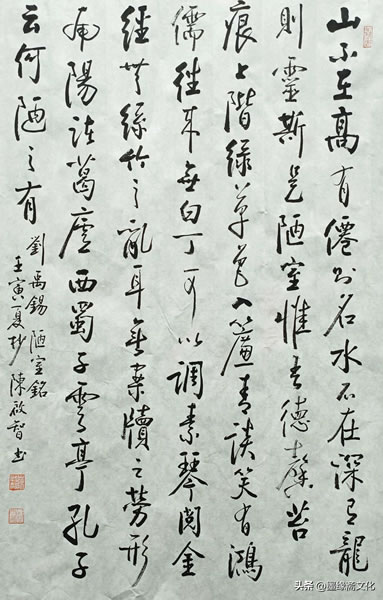 山不在高有僊則名水不在深有龍
則靈斯是陋室惟吾德馨苔
痕上階綠草色入簾青談笑有鴻
儒往来無白丁可以調素琴閱金
經無絲竹之亂耳無案牘之勞形
南陽諸葛廬西蜀子雲亭孔子
云何陋之有
劉禹錫陋室銘
壬寅夏杪陳啟智书
头条 @墨缘斋文化